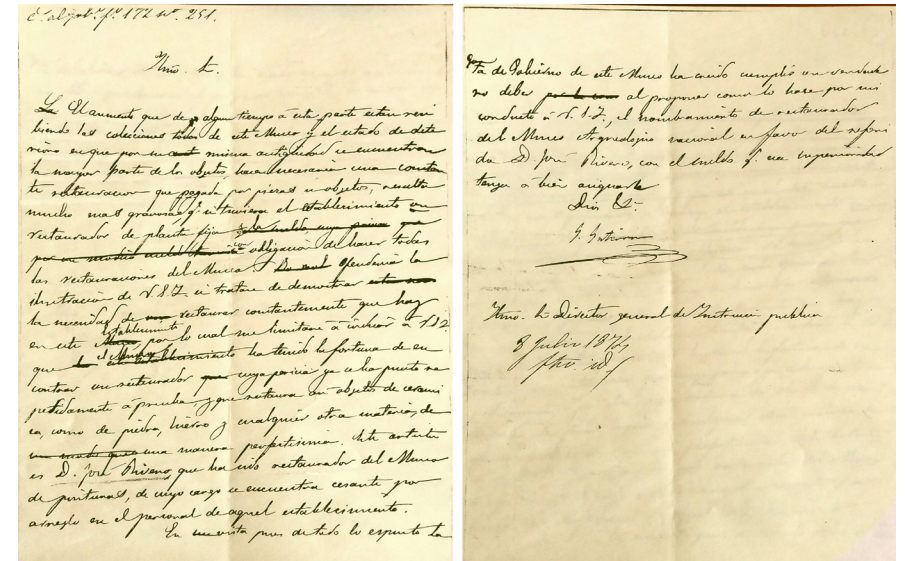 fº 172 nº. 251.
Ilmo. Sr.
El aumento que de algun tiempo á esta parte estan reci
biendo las colecciones todas de este Museo y el estado de dete
rioro en que por su misma antigüedad se encuentran
la mayor parte de los objetos, hacen necesaria una constan
te restauracion que pagada por piezas u objetos, resulta
mucho mas gravosa, q. si tuviera el establecimiento un
restaurador de planta fija
obligacion de hacer todas
las restauraciones del Museo. ofenderia la
ilustracion de V.S.I. si tratase de demostrar
la necesidad de restaurar constantemente que hay
en este establecimiento por lo cual me limitaré á indicar á V.S.I.
que el Museo ha tenido la fortuna de en
contrar un restaurador cuya pericia ya se ha puesto re
petidamente á prueba, y que restaura asi objetos de cerami
ca, como de piedra, hierro y cualquier otra materia, de
una manera perfectisima. Este artista
es D. José Rivero, que ha sido restaurador del Museo
de pinturas, de cuyo cargo se encuentra cesante por
arreglo en el personal de aquel establecimiento.
En su vista pues de todo lo expuesto la
Jta de Gobierno de este Museo ha creido cumplir un verdade
ro deber al proponer como lo hace por mi
conducto á V.S.I., el nombramiento de restaurador
del Museo Arqueologico nacional en favor del referi
do D. José Rivero, con el sueldo q. esa superioridad
tenga á bien asignarle
Dios &ª
Ilmo. Sr. Director general de Instruccion publica
8 Julio 1874